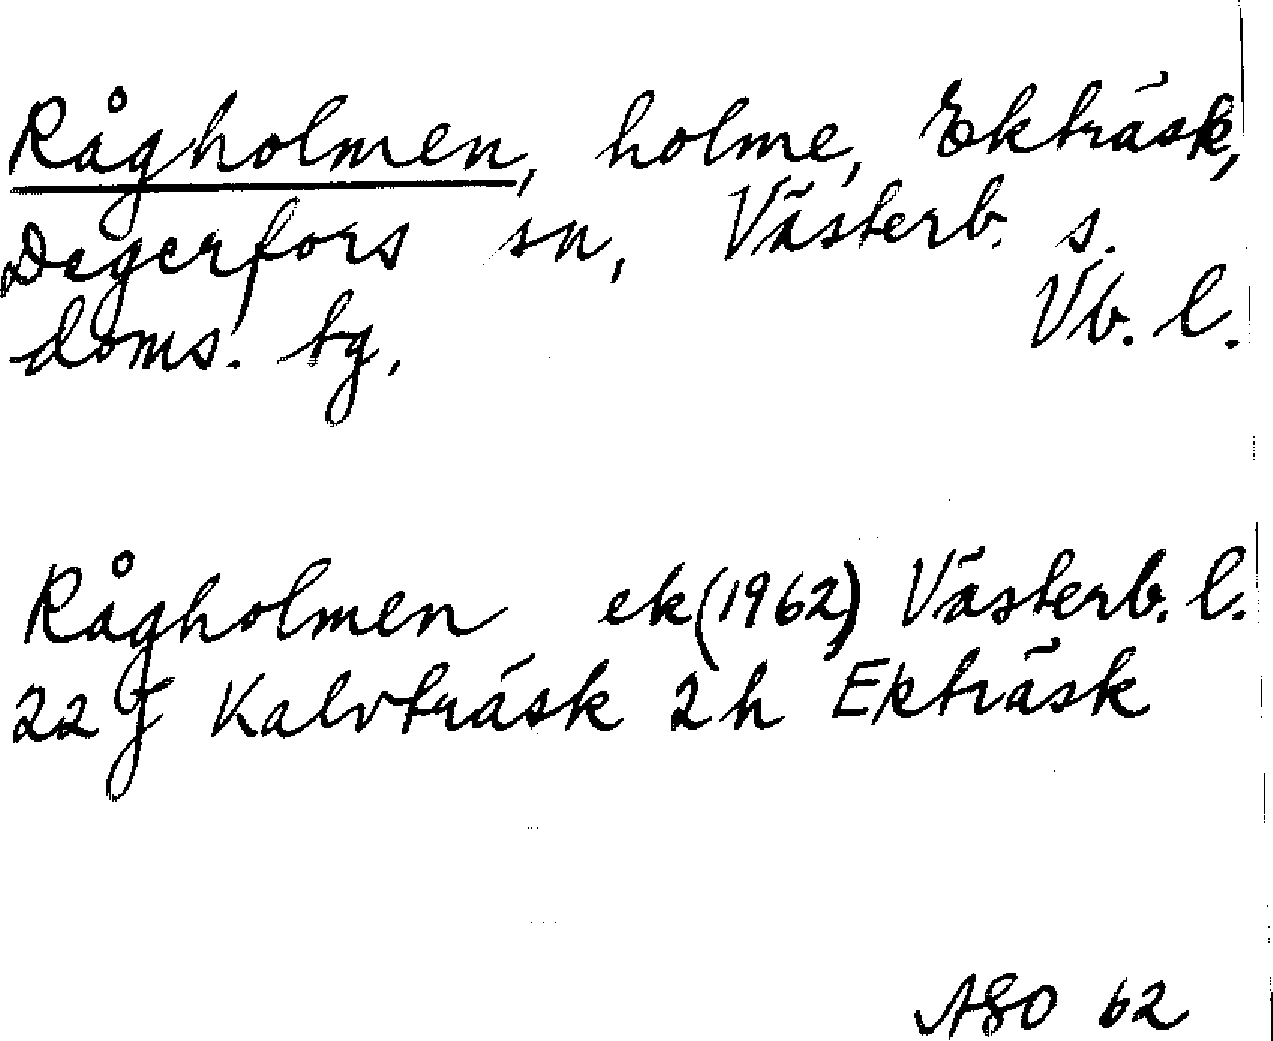 Rågholmen, holme, Ekträsk,
Degerfors sn, Västerb. s.
doms. tg, Vb. l.
Rågholmen ek (1962) Västerb. l.
22 J Kalvträsk 2h Ekträsk
ASO 62